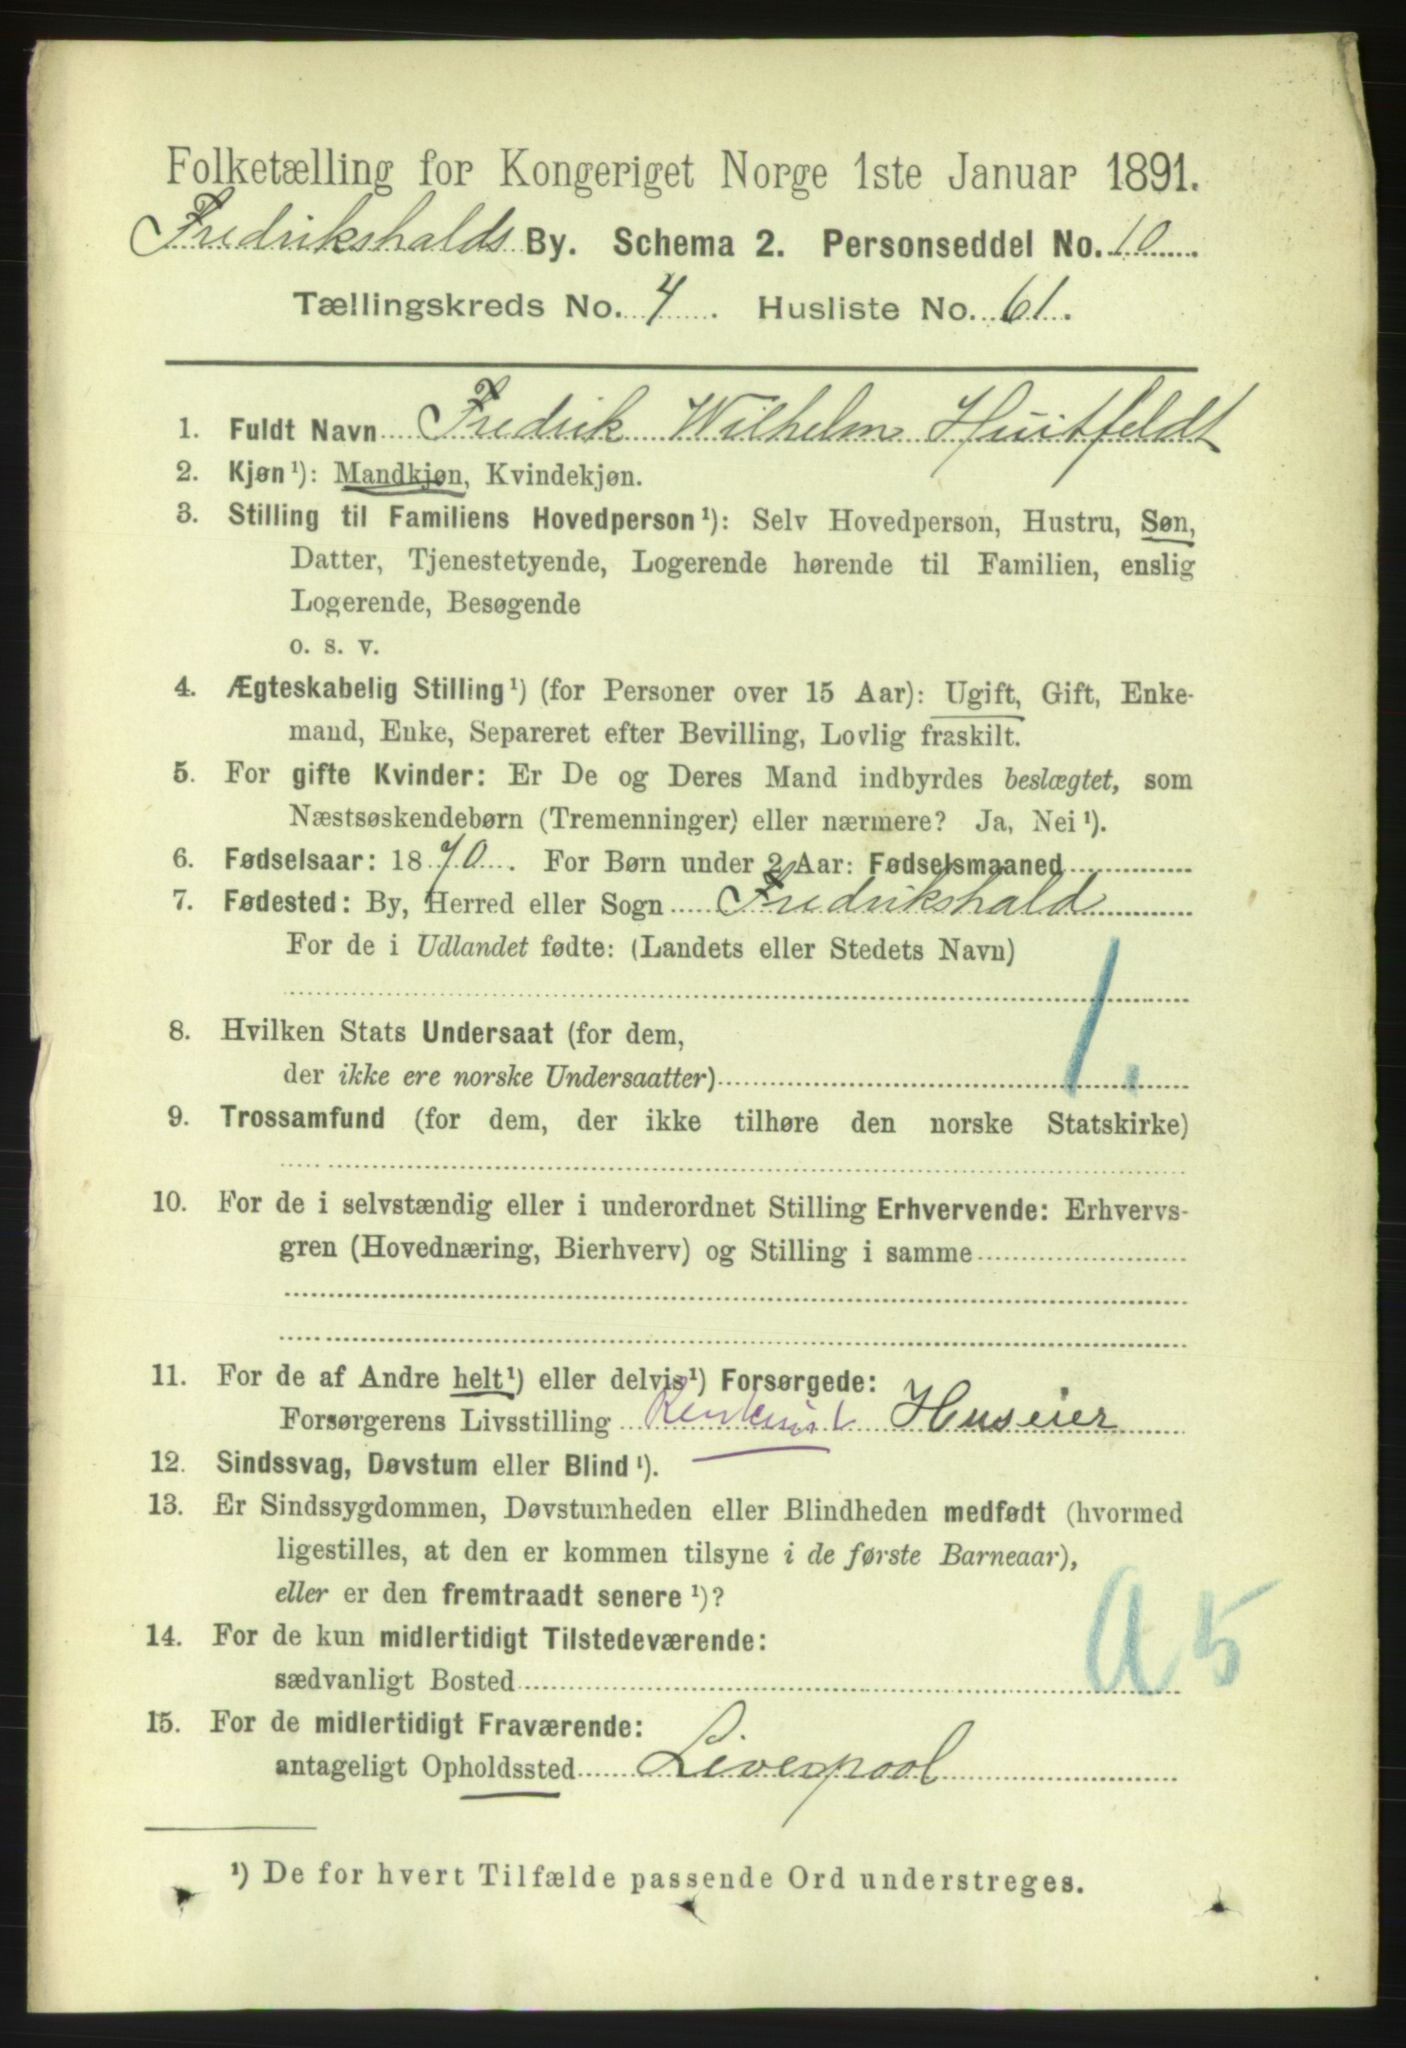 Folketælling for Kongeriget Norge 1ste Januar 1891.
Fredrikshalds By. Schema 2. Personseddel No. 10
Tællingskreds No. 4. Husliste No. 61.
1. Fuldt Navn Fredrik Wilhelm Huitfeldt
2. Kjøn ¹): Mandkjøn, Kvindekjøn.
3. Stilling til Familiens Hovedperson ¹): Selv Hovedperson, Hustru, Søn,
Datter, Tjenestetyende, Logerende hørende til Familien, enslig
Logerende, Besøgende
o. s. v.
4. Ægteskabelig Stilling ¹) (for Personer over 15 Aar): Ugift, Gift, Enke-
mand, Enke, Separeret efter Bevilling, Lovlig fraskilt.
5. For gifte Kvinder: Er De og Deres Mand indbyrdes beslægtet, som
Næstsøskendebørn (Tremenninger) eller nærmere? Ja, Nei ¹).
6. Fødselsaar: 1870. For Børn under 2 Aar: Fødselsmaaned
7. Fødested: By, Herred eller Sogn Fredrikshald
For de i Udlandet fødte: (Landets eller Stedets Navn)
1.
8. Hvilken Stats Undersaat (for dem,
der ikke ere norske Undersaatter)
9. Trossamfund (for dem, der ikke tilhøre den norske Statskirke)
10. For de i selvstændig eller i underordnet Stilling Erhvervende: Erhvervs-
gren (Hovednæring, Bierhverv) og Stilling i samme
11. For de af Andre helt ¹) eller delvis ¹) Forsørgede:
Forsørgerens Livsstilling Rentenist Huseier
12. Sindssvag, Døvstum eller Blind ¹).
13. Er Sindssygdommen, Døvstumheden eller Blindheden medfødt (hvormed
ligestilles, at den er kommen tilsyne i de første Barneaar),
eller er den fremtraadt senere ¹)?
A 5
14. For de kun midlertidigt Tilstedeværende:
sædvanligt Bosted
15. For de midlertidigt Fraværende:
antageligt Opholdssted Liverpool
¹) De for hvert Tilfælde passende Ord understreges.